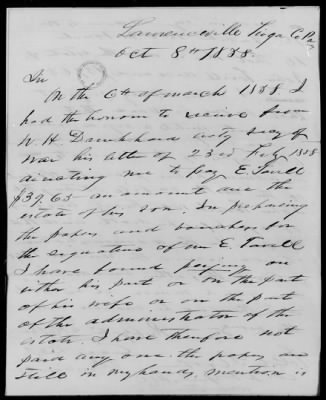 Lawrenceville Tioga Co Pa
Oct 8th 1858
Sir
On the 6th of march 1858 I
had the honour to receive from
W. H. acty secy of
War his letter of 23rd Feby 1858
directing me to pay E. Tavell
$39.65 an amount due the
estate of his son. In preparing
the papers and vouchers for
the signature of mr E. Tavell
I have found perjury on
either his part or on the part
of his wife or on the part
of the administrator of the
estate. I have therefore not
paid any one. the papers are
still in my hands, mention is